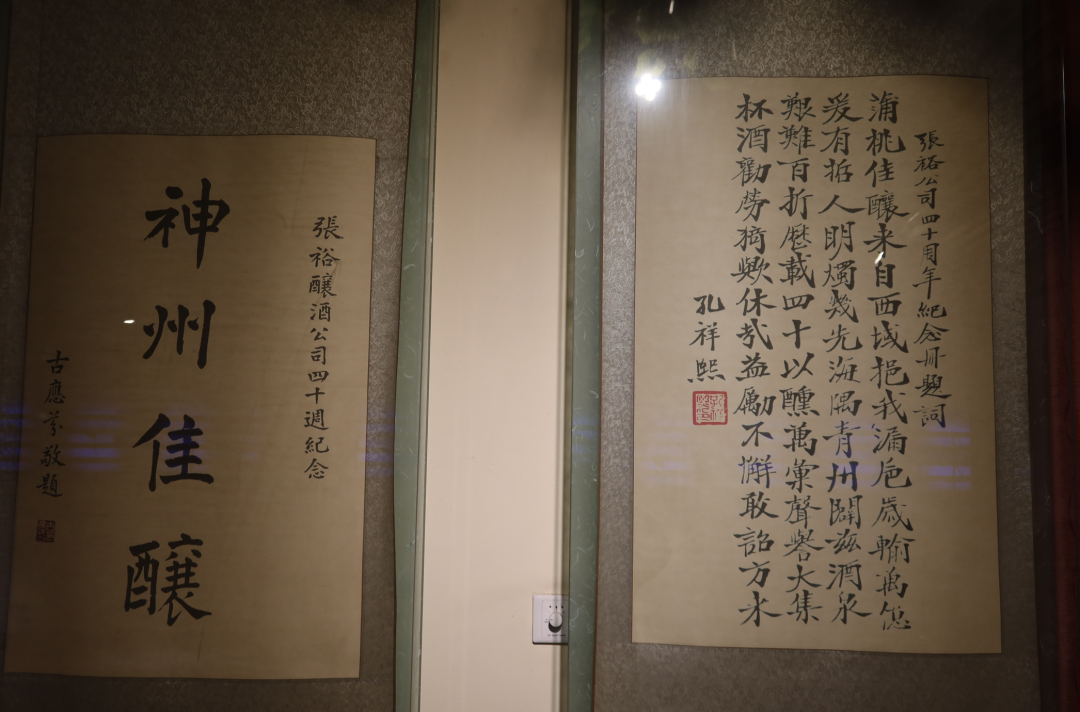 張裕公司四十周年紀念冊題詞
蒲桃佳釀来自西域挹我漏卮歲輸萬億
爰有哲人明燭幾先海隅青州闢兹酒泉
艱難百折歷載四十以醺萬彙聲譽大集
杯酒勸勞猗歟休哉益勵不懈敢詔方来
孔祥熙
張裕釀酒公司四十週紀念
神州佳釀
古應芬敬題